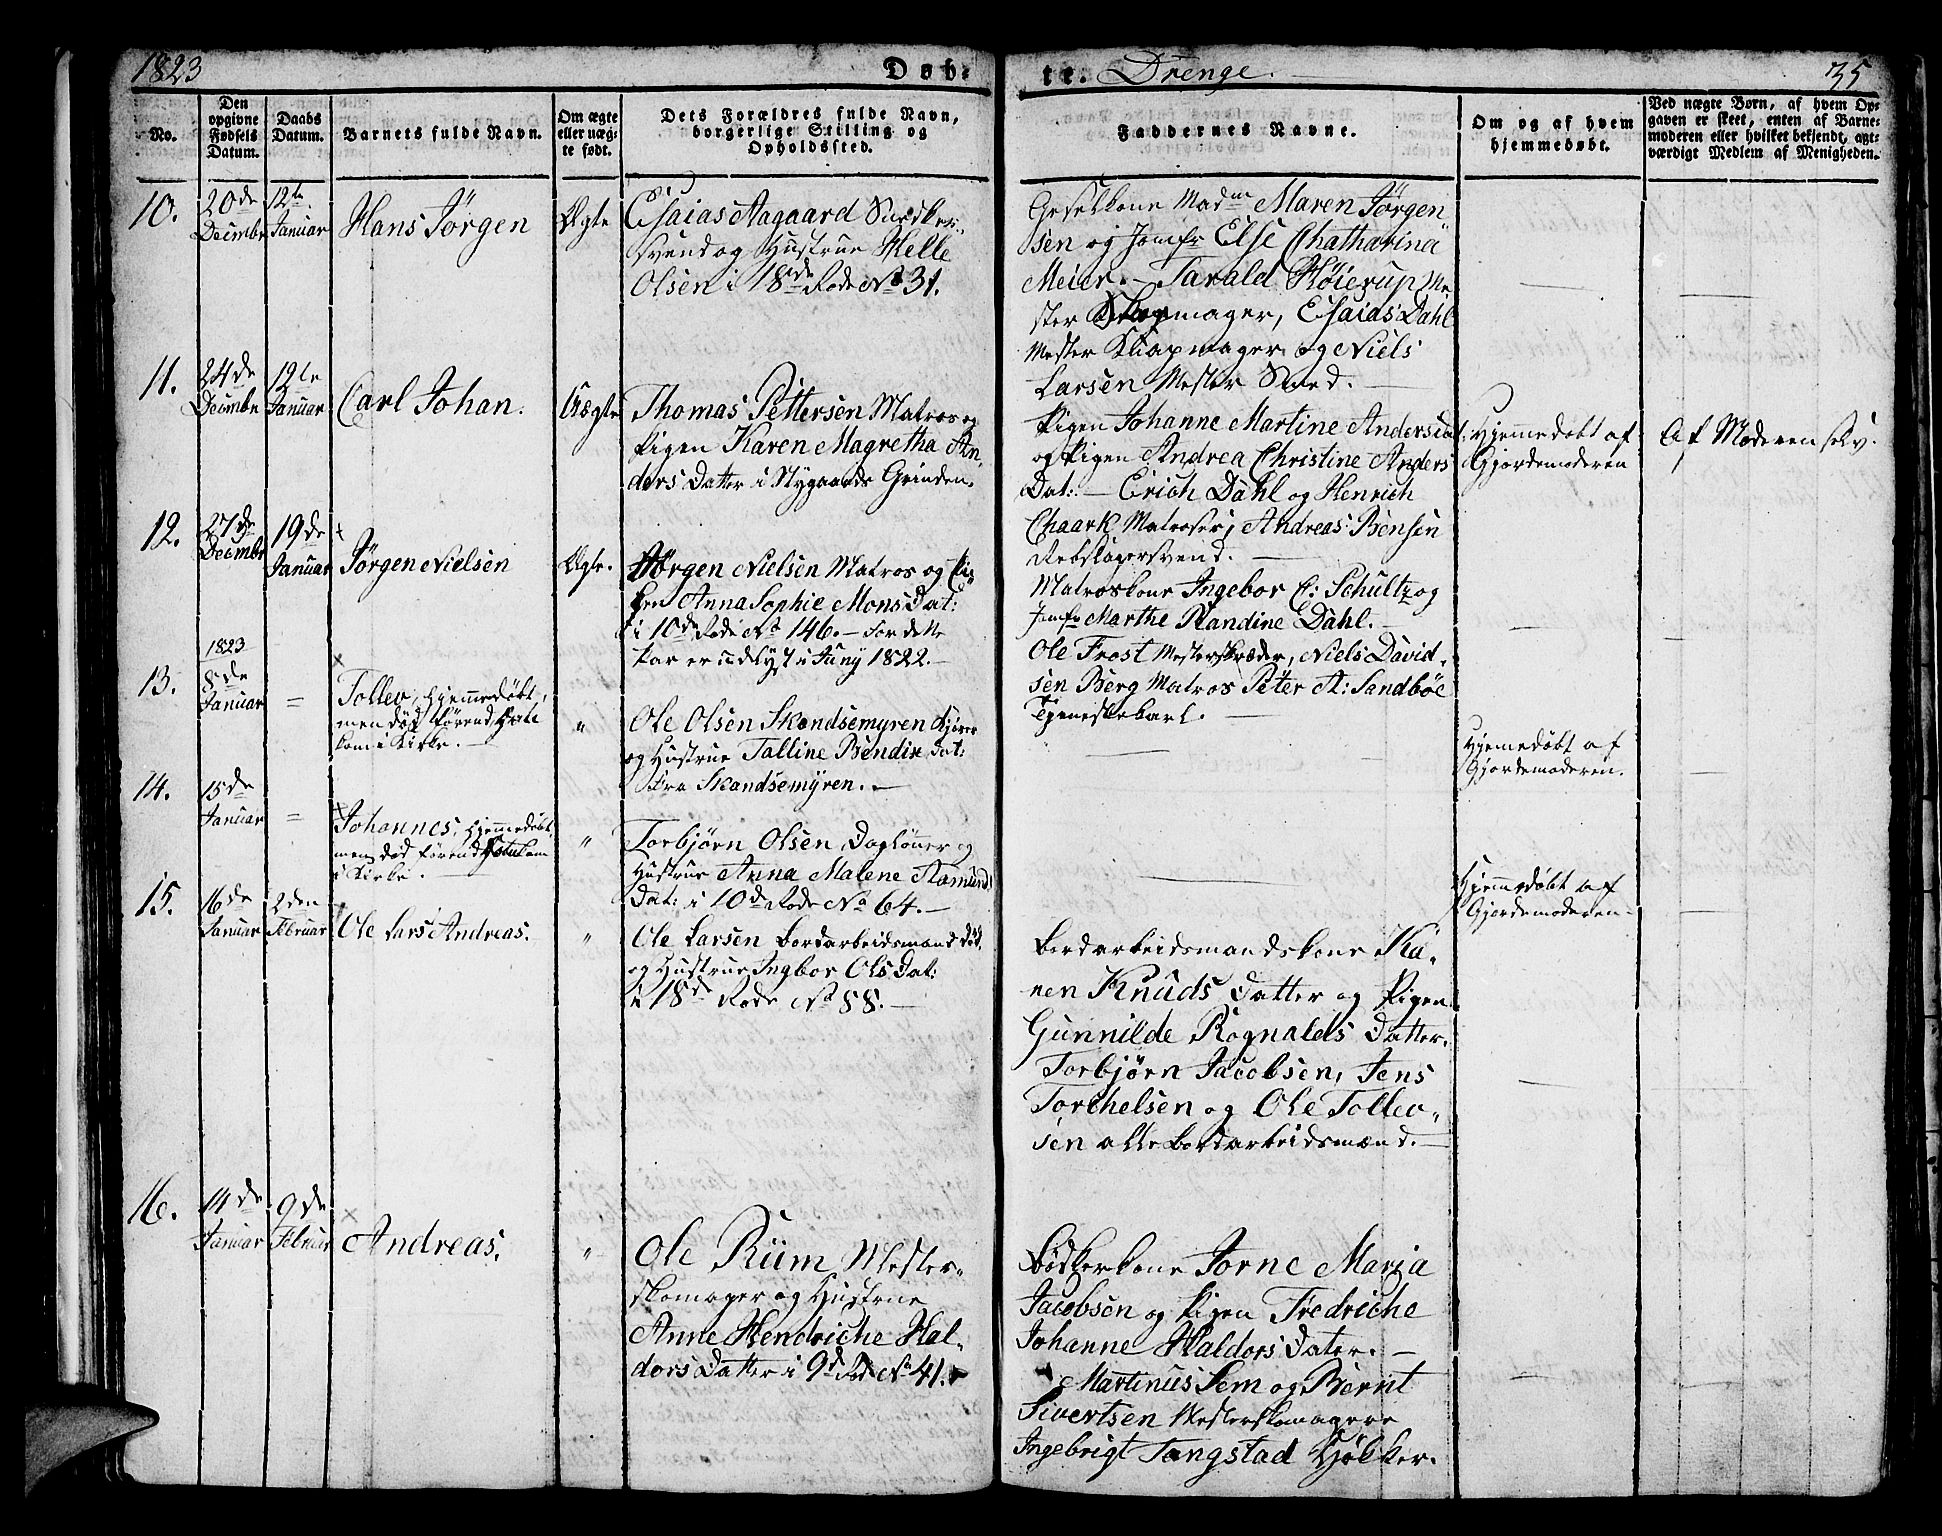 1823
Døb-
te. Drenge.
35
No.
Den
opgivne
Fødsels
Datum.
Daabs
Datum.
Barnets fulde Navn.
Om ægte
eller uæg-
te født.
Dets Forældres fulde Navn,
borgerlige Stilling og
Opholdssted.
Faddernes Navne.
Om og af hvem
hjemmedøbt.
Ved uægte Børn, af hvem Op-
gaven er skeet, enten af Barne-
moderen eller hvilket bekjendt, agt-
værdigt Medlem af Menigheden.
10.
20de
Decimbr
12te
Januar
Hans Jörgen
Ægte
Esaias Aagaard Snedker-
svend og Hustrue Helle
Olsen i 18de Rode No 31.
Geselkone Madme Maren Jörgen
sen og Jomfr Else Chatharina
Meier. - Tarald Höierup Me
ster mager, Esaias Dahl
Mester Knapmager og Niels
Larsen Mester Smed.
11.
24de
Decimbr
12te
Januar
Carl Johan.
Uægte
Thomas Pettersen Matros og
Pigen Karen Magretha An-
ders Datter i Nygaards Grinden.
Pigen Johanne Martine Andersdat:
og Pigen Andrea Christine Anders
Dat: - Erich Dahl og Henrich
Chaark Matroser, Andreas Bensen
Rebslagersvend.
Hjemmedøbt af
Gjordemoderen
Af Moderen selv.
12.
27de
Decimbr
19de
Januar
Jörgen Nielsen
Ægte.
Jörgen Nielsen Matros og Pi-
gen Anna Sophie Mons Dat:
i 10de Rode No 146. - For dette
Par er udlyst i Juny 1822. -
Matroskone Ingebor C: Schultz og
Jomfr Marthe Randine Dahl. -
Ole Frost Mesterskræder, Niels David-
sen Berg Matros Peter A: Sandböe
Tjenestekarl.
1823
13.
8de
Januar
=
Tollev, hjemmedöbt,
men död förend
kom i Kirke. -
"
Ole Olsen Skandsemyren Kjörer
og Hustrue Talline Bendix Dat:
fra Skandsemyren. -
Hjemedöbt af
Gjordemoderen.
14.
15de
Januar
=
Johannes, hjemmedöbt,
men död förend
i Kirke. -
"
Torbjörn Olsen Daglönner og
Hustrue Anna Malene Aamund
Dat: i 10de Rode No 64. -
Hjemmedöbt af
Gjordemoderen-
15.
16de
Januar
2den
Februar
Ole Lars Andreas.
"
Ole Larsen Bordarbeidsmand död,
og Hustrue Ingbor Ols Dat:
i 18de Rode No 88. -
Bordarbeidsmandskone Ka-
ren Knuds Datter og Pigen
Gunnilde Rognalds Datter.
Torbjörn Jacobsen, Jens
Torchelsen og Ole Tollev-
sen alle Bordarbeidsmænd. -
16.
14de
Januar
9de
Februar
Andreas.
"
Ole Riim Mester-
skomager og Hustrue
Anne Hendriche Hal-
dors Datter i 9de Rode No 41.
Bödkerkone Jorne Maria
Jacobsen og Pigen Fredriche
Johanne Haldors Dater. -
Martinus Sem og Bernt
Sivertsen Mesterskomagere
Ingebrigt Tangstad Hökker.